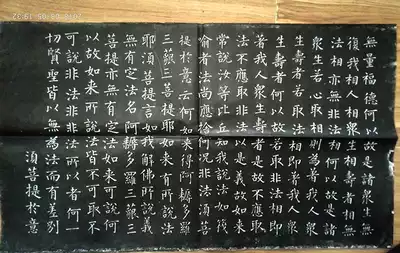 無量福德何以故是諸衆生無
復我相人相衆生相壽者相無
法相亦無非法相何以故是諸
衆生若心取相則為著我人衆
生壽者若取法相即著我人衆
生壽者何以故若取非法相即
著我人衆生壽者是故不應取
法不應取非法以是義故如來
常說汝等比丘知我說法如筏
喻者法尚應捨何況非法須菩
提於意云何如來得阿耨多羅
三藐三菩提耶如來有所說法
耶須菩提言如我解佛所說義
無有定法名阿耨多羅三藐三
菩提亦無有定法如來可說何
以故如來所說法皆不可取不
可說非法非非法所以者何一
切賢聖皆以無為法而有差別
須菩提於意